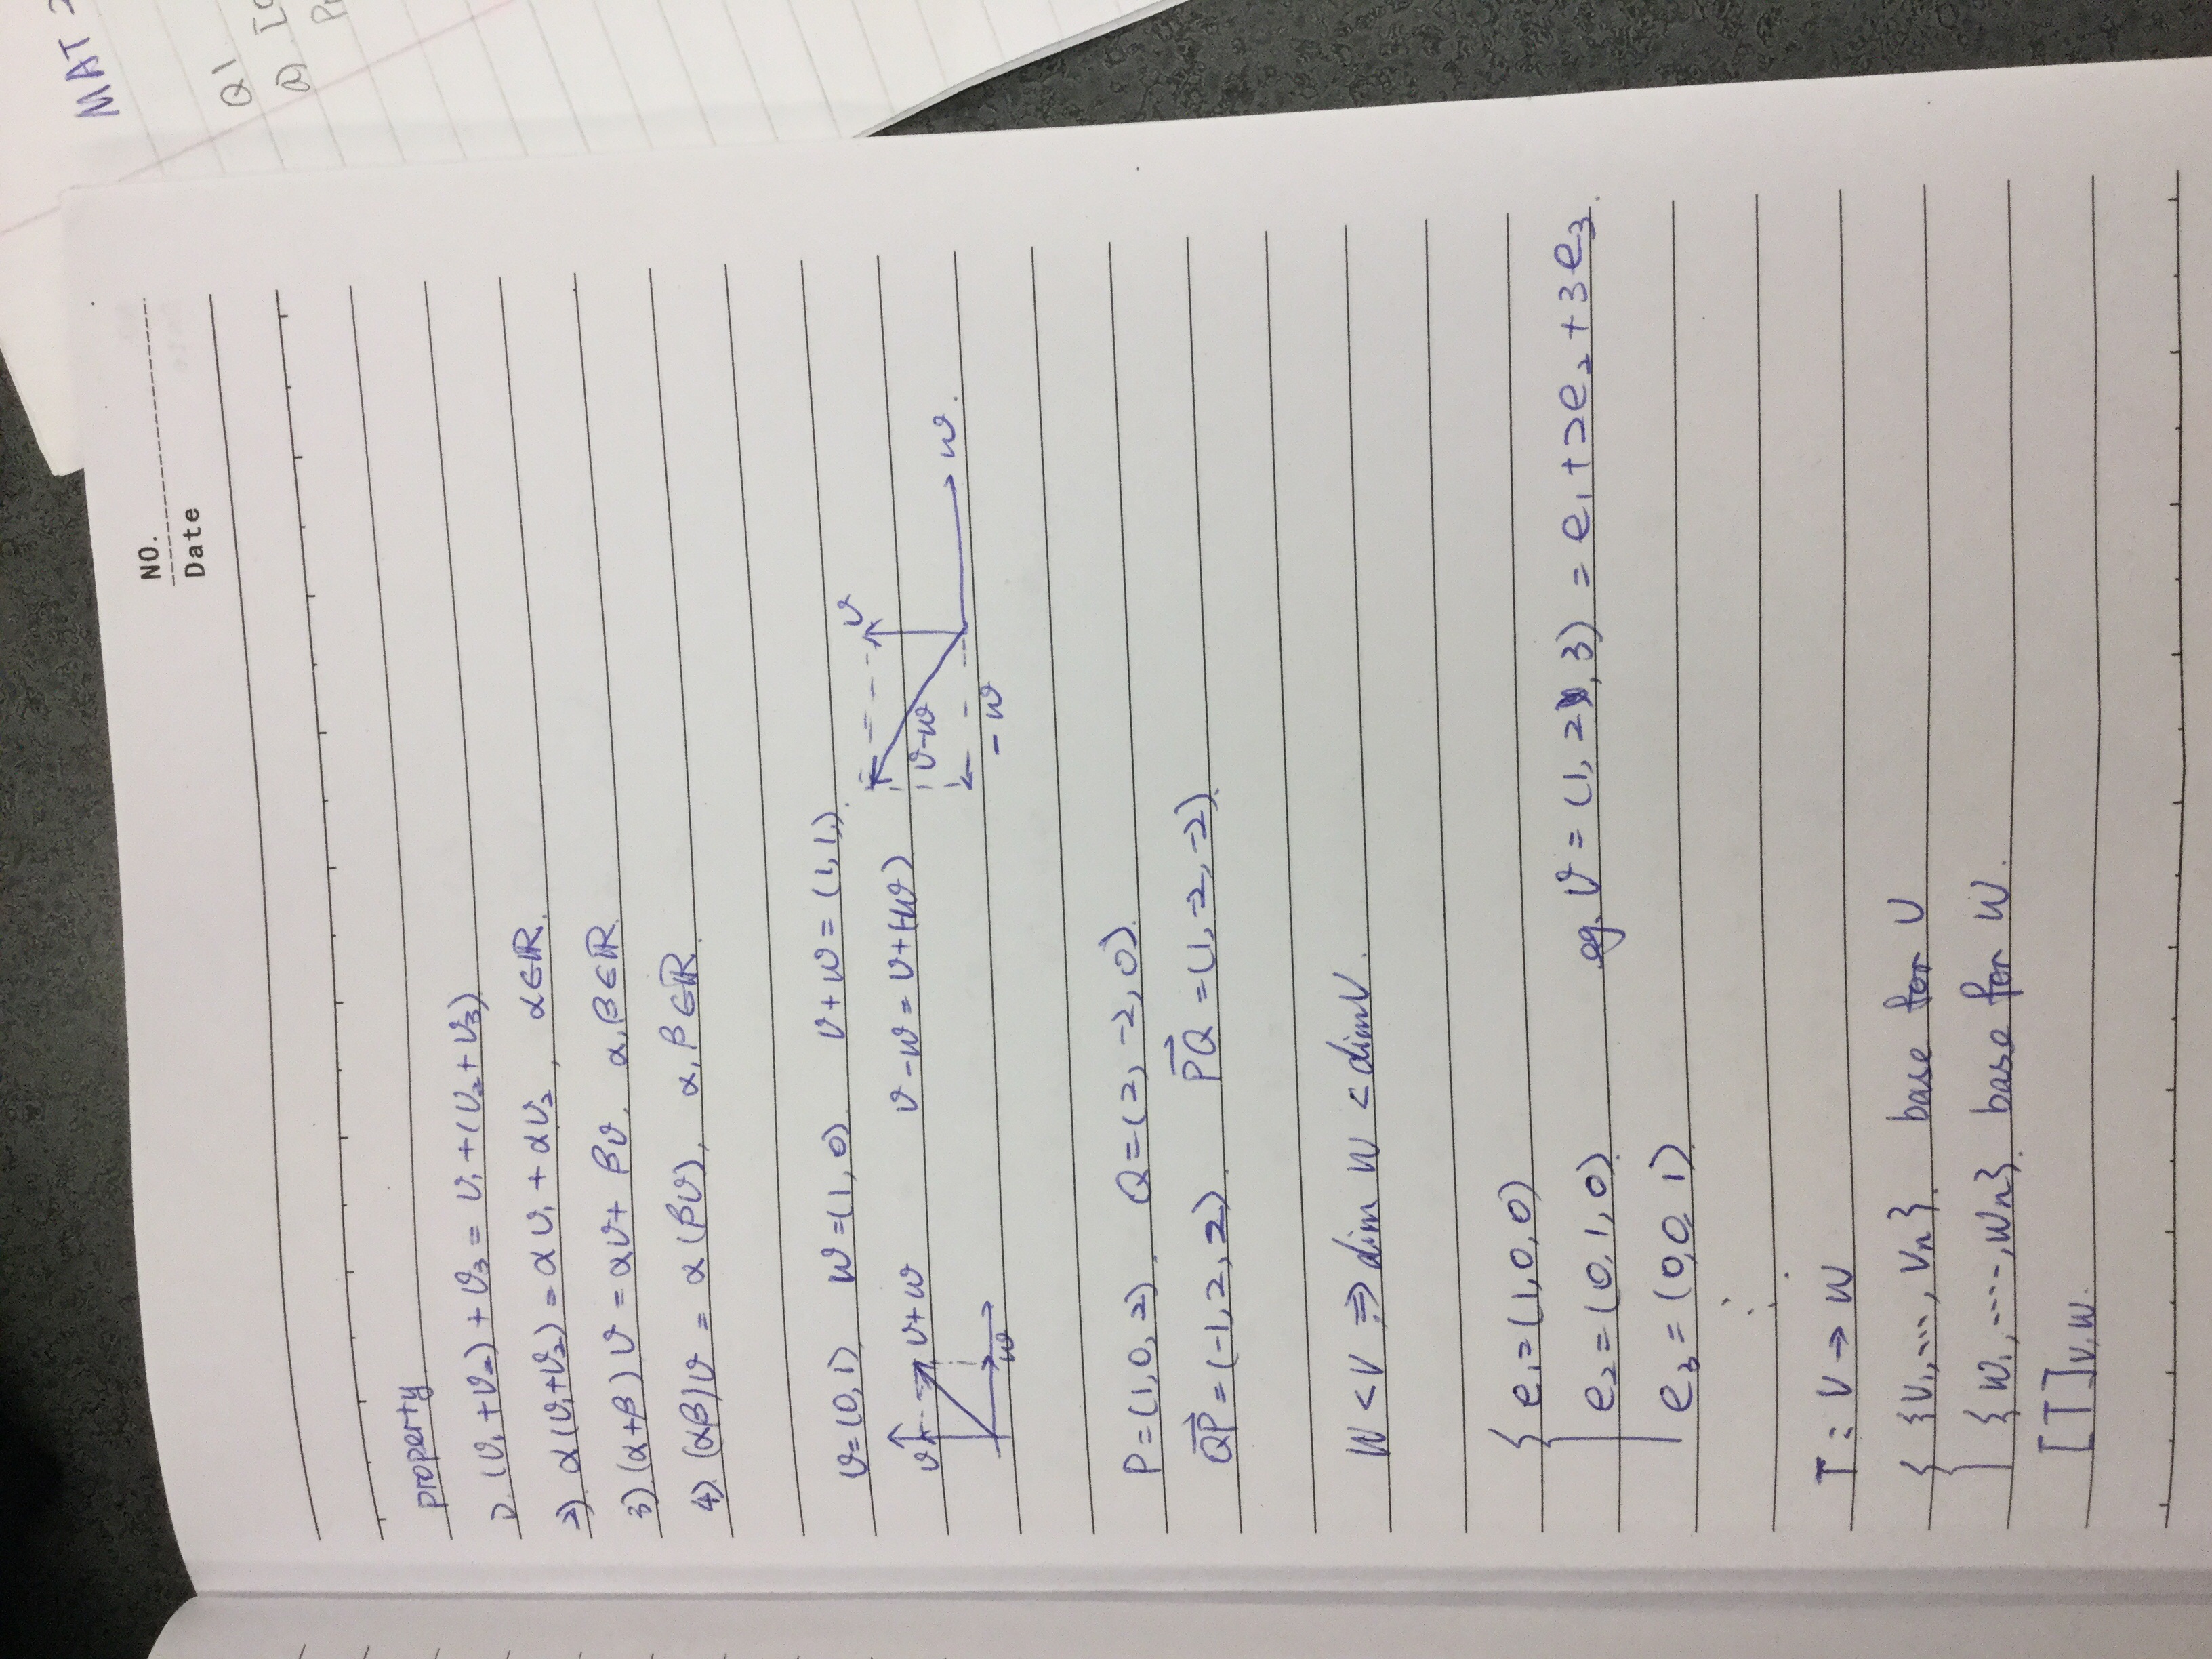 MAT
Q1
a)
NO.
Date
property
1). (v₁+v₂)+v₃ = v₁+(v₂+v₃)
2). α(v₁+v₂) = αv₁ + αv₂ , α∈ℝ.
3). (α+β)v = αv + βv. α,β∈ℝ
4). (αβ)v = α(βv), α,β∈ℝ.
v=(0,1) w=(1,0) v+w=(1,1,)
v v+w v-w = v+(-w) v
v-w w.
w -w
P=(1,0,2). Q=(2,-2,0).
QP⃗=(-1,2,2) PQ⃗=(1,-2,-2).
W<V ⇒ dim W < dim V.
{ e₁=(1,0,0)
e₂=(0,1,0) eg. v = (1,2,3) = e₁+2e₂+3e₃.
e₃=(0,0,1)
T: V → W
{ {v₁,...,vn}. base for V
{w₁,...,wn}. base for W.
[T]v,w.